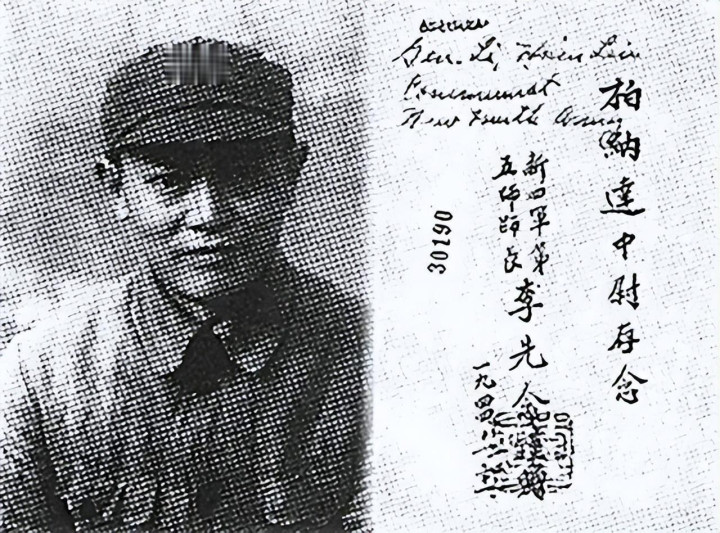 Gen. Li, Hsien Lien
Communist
New Fourth Army
柏納達中尉存念
新四軍第
五師師長
李先念
一九四四
30190